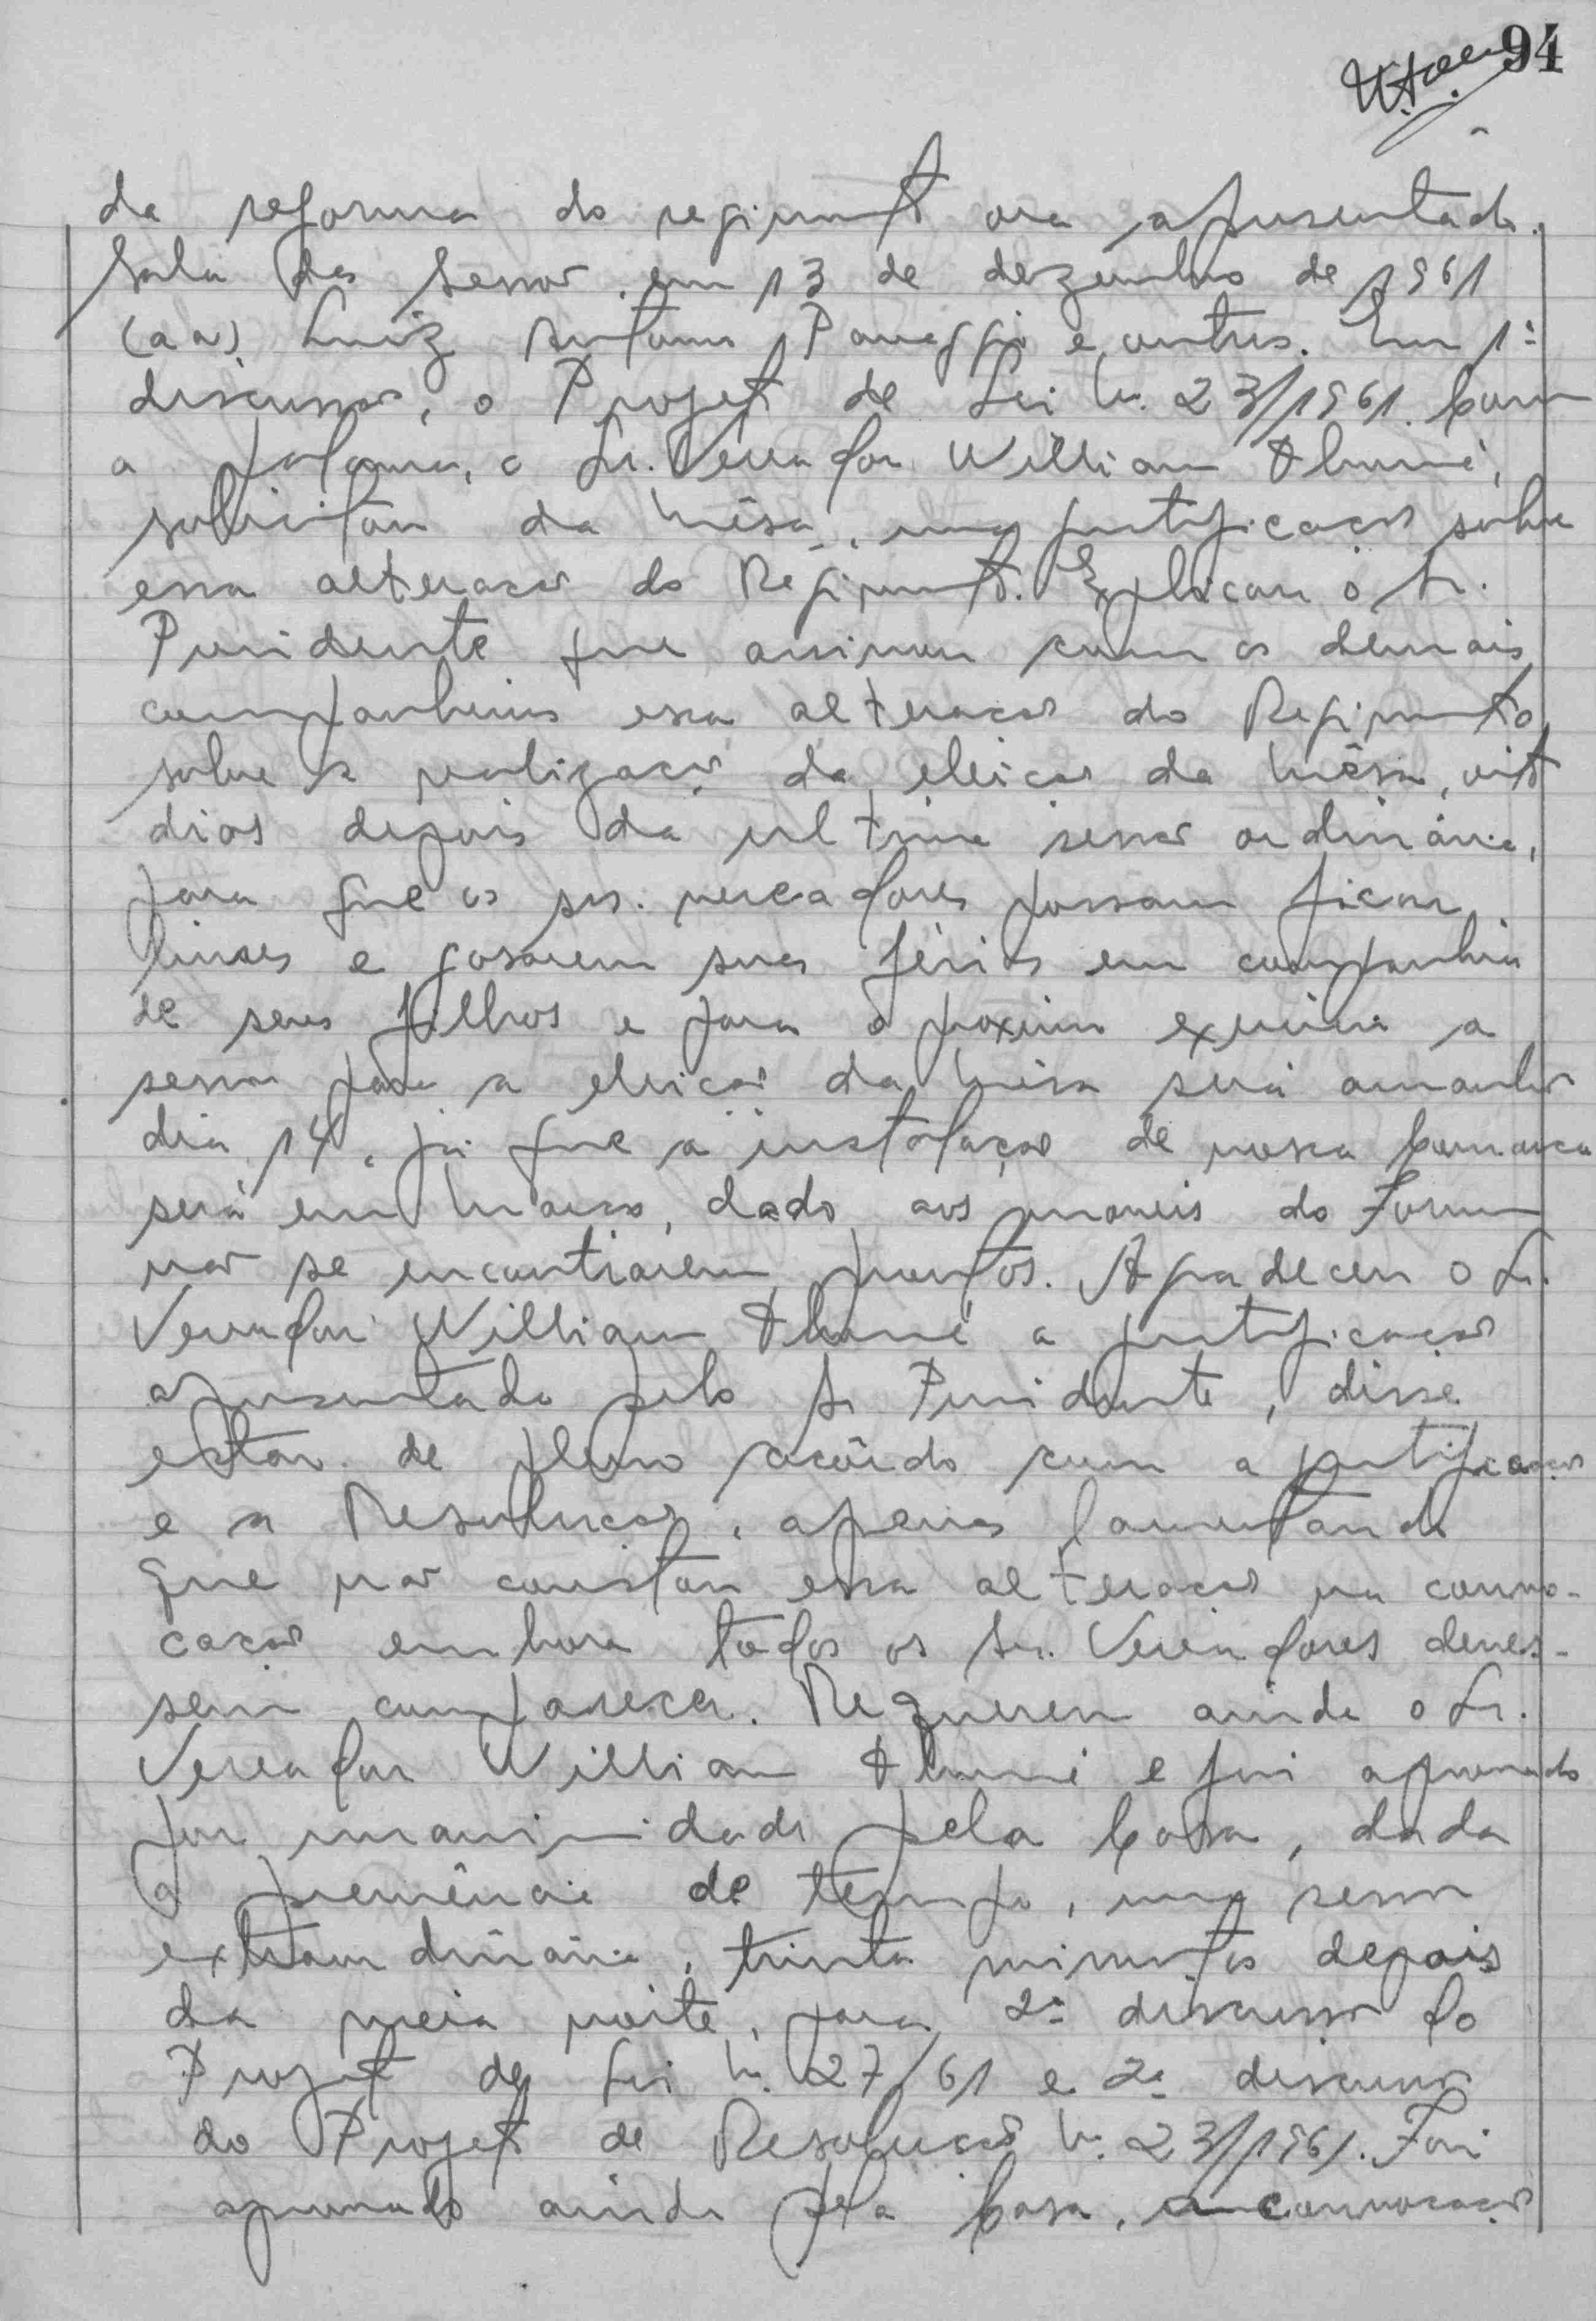 94
da reforma do regimento ora apresentado.
Sala das Sessões em 13 de dezembro de 1961
(aa) Luiz Antonio e outros. Em 1ª
discussão, o Projeto de Lei N. 23/1961. Com
a palavra, o Sr. Vereador William Thomé,
solicitou da Mêsa, uma justificação sobre
essa alteração do Regimento. Explicou o Sr.
Presidente que assinou com os demais
companheiros essa alteração do Regimento
sobre a realização da eleição da Mêsa, oito
dias depois da ultima sessão ordinária,
para que os srs. vereadores possam ficar
livres e gosarem suas férias em companhia
de seus filhos e para o proximo exercicio a
sessão para a eleição da Mêsa será amanhã
dia 14, já que a instalação de nossa Comarca
será em Março, dado aos moveis do Forum
não se encontrarem prontos. Agradeceu o Sr.
Vereador William Thomé a justificação
apresentada pelo Sr Presidente, disse
estar de pleno acôrdo com a justificação
e a Resolução, apenas lamentando
que não constou essa alteração na convo-
cação embora todos os Srs. Vereadores deves-
sem comparecer. Requereu ainda o Sr.
Vereador William Thomé e foi aprovado
por unanimidade pela Casa, dada
a premência de tempo, uma sessão
extraordinária, trinta minutos depois
da meia noite, para 2ª discussão do
Projeto de Lei N. 27/61 e 2ª discussão
do Projeto de Resolução N. 23/1961. Foi
aprovado ainda pela Casa, a convocação